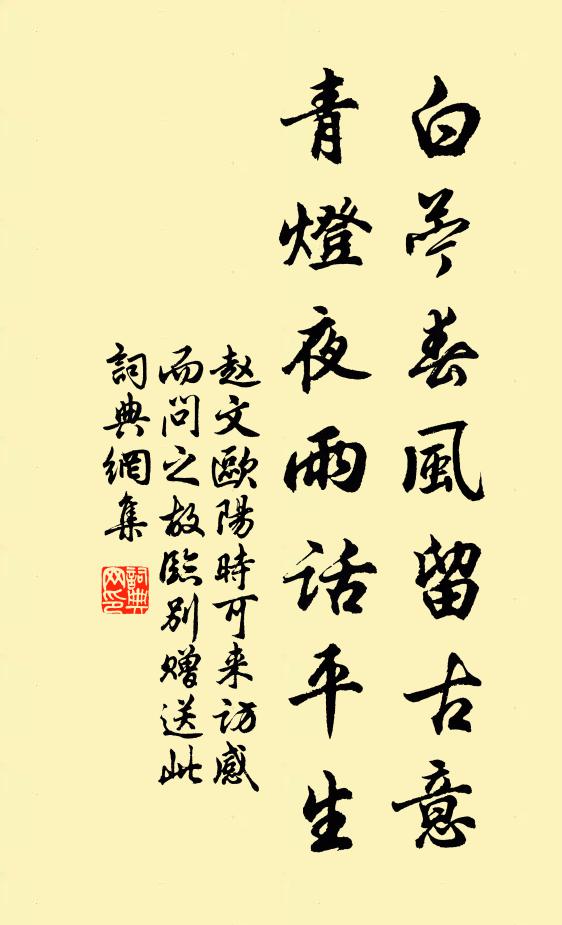 白苧春風留古意
青燈夜雨話平生
赵文歐陽時可来訪感
而问之故臨别赠送此
詞典網集
詞典网印